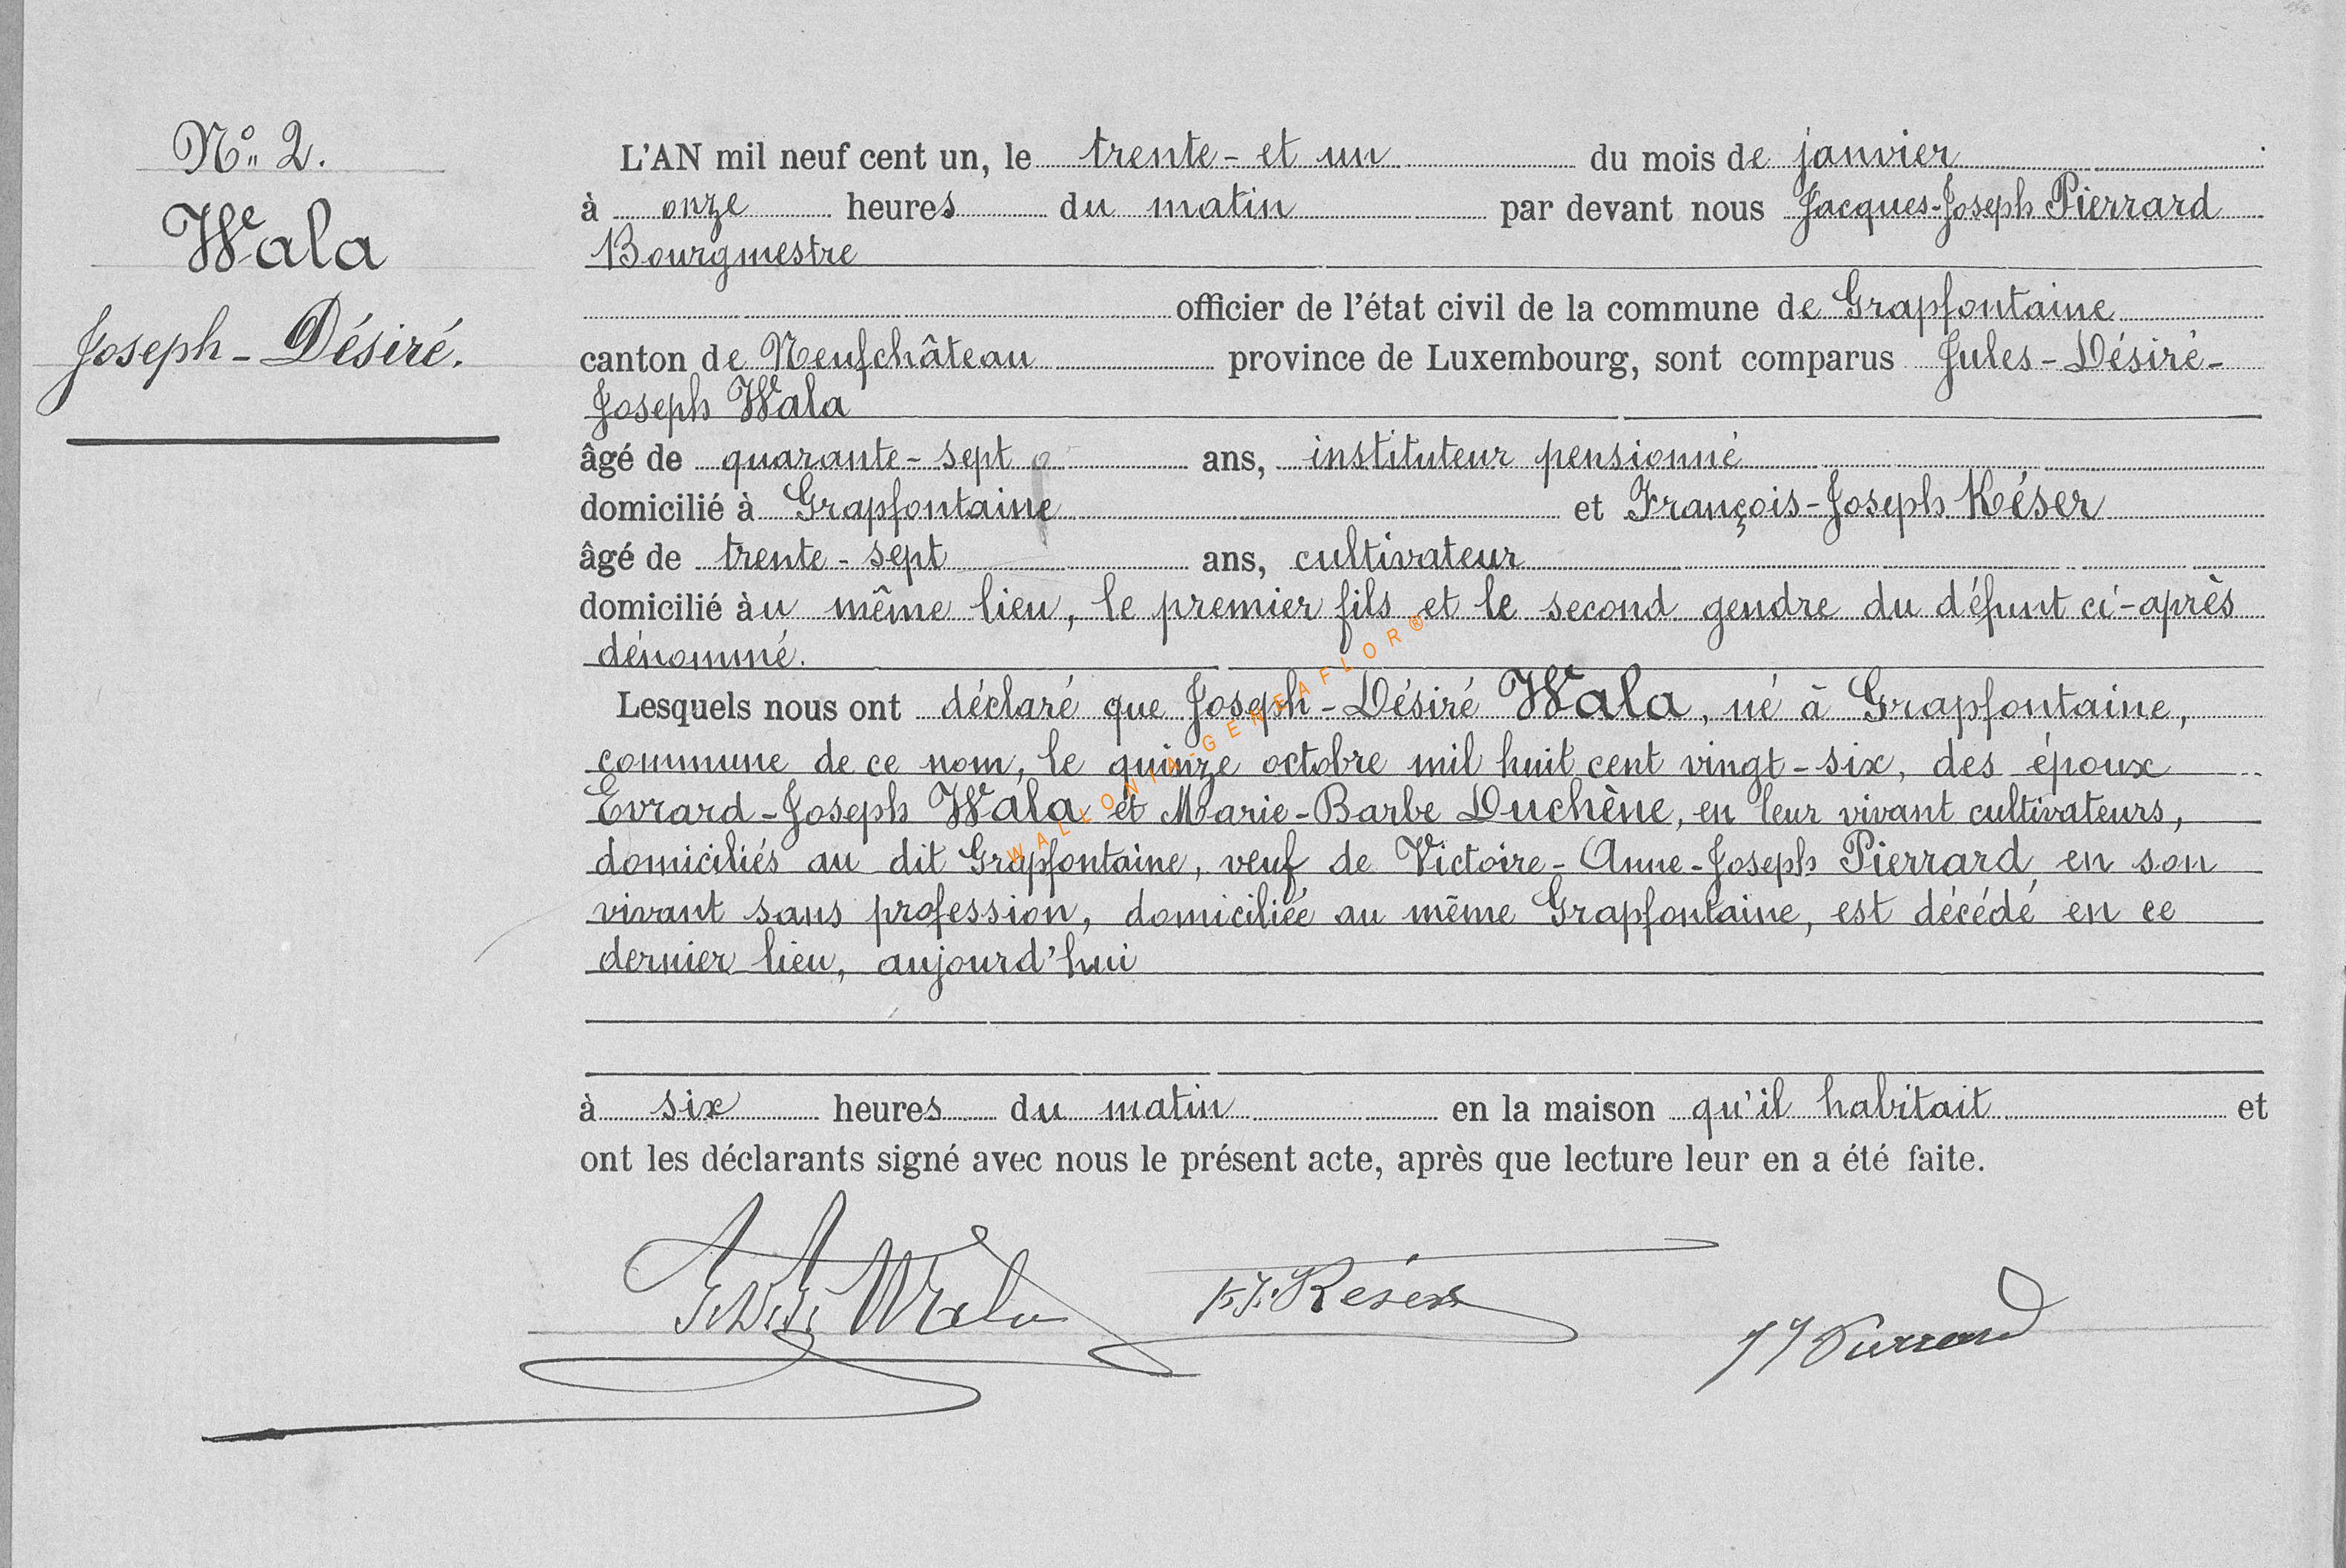 N° 2.
Wala
Joseph-Désiré.
L'AN mil neuf cent un, le trente-et un du mois de janvier
à onze heures du matin par devant nous Jacques-Joseph Pierrard
Bourgmestre
officier de l'état civil de la commune de Grapfontaine
canton de Neufchâteau province de Luxembourg, sont comparus Jules-Désiré-
Joseph Wala
âgé de quarante-sept ans, instituteur pensionné
domicilié à Grapfontaine et François-Joseph Késer
âgé de trente-sept ans, cultivateur
domicilié àu même lieu, le premier fils et le second gendre du défunt ci-après
dénommé.
Lesquels nous ont déclaré que Joseph-Désiré Wala, né à Grapfontaine,
commune de ce nom, le quinze octobre mil huit cent vingt-six, des époux
Evrard-Joseph Wala et Marie-Barbe Duchêne, en leur vivant cultivateurs,
domiciliés au dit Grapfontaine, veuf de Victoire-Anne-Joseph Pierrard, en son
vivant sans profession, domiciliée au même Grapfontaine, est décédé en ce
dernier lieu, aujourd'hui
à six heures du matin en la maison qu'il habitait et
ont les déclarants signé avec nous le présent acte, après que lecture leur en a été faite.
J.D.J. Wala F.J. Késer JJ Pierrard
WALLONIA-GENEAFLOR®